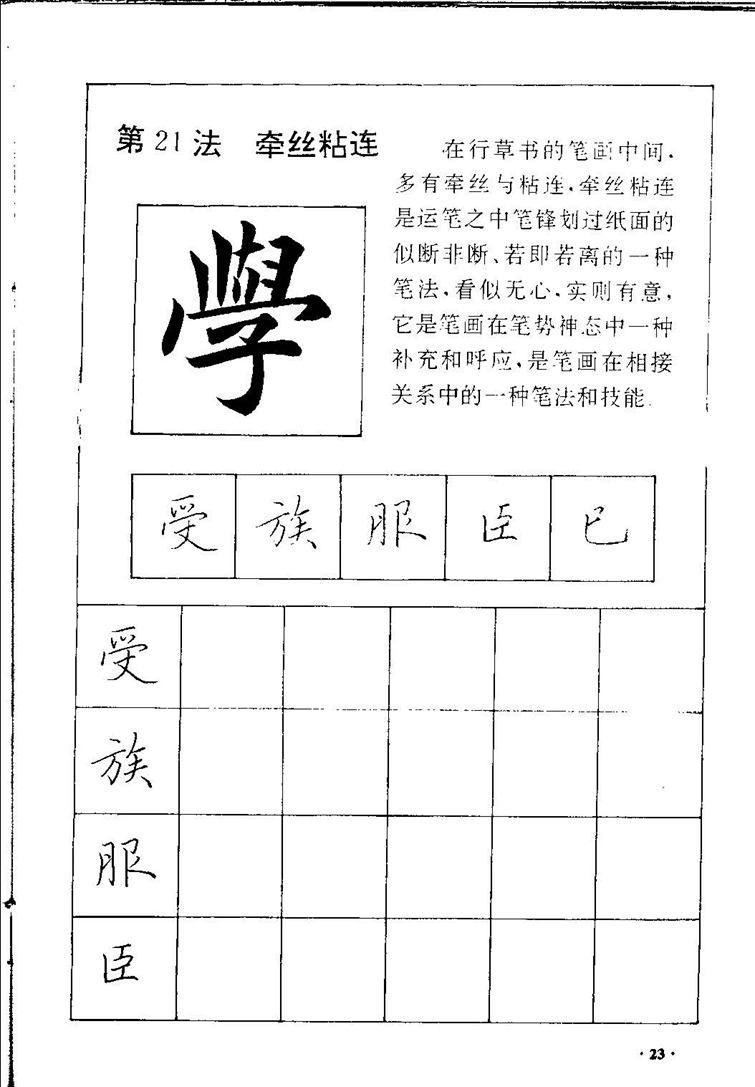 第21法 牵丝粘连
在行草书的笔画中间，
多有牵丝与粘连，牵丝粘连
是运笔之中笔锋划过纸面的
似断非断、若即若离的一种
笔法，看似无心，实则有意，
它是笔画在笔势神态中一种
补充和呼应，是笔画在相接
关系中的一种笔法和技能.
學
受 族 服 臣 已
受
族
服
臣
·23·